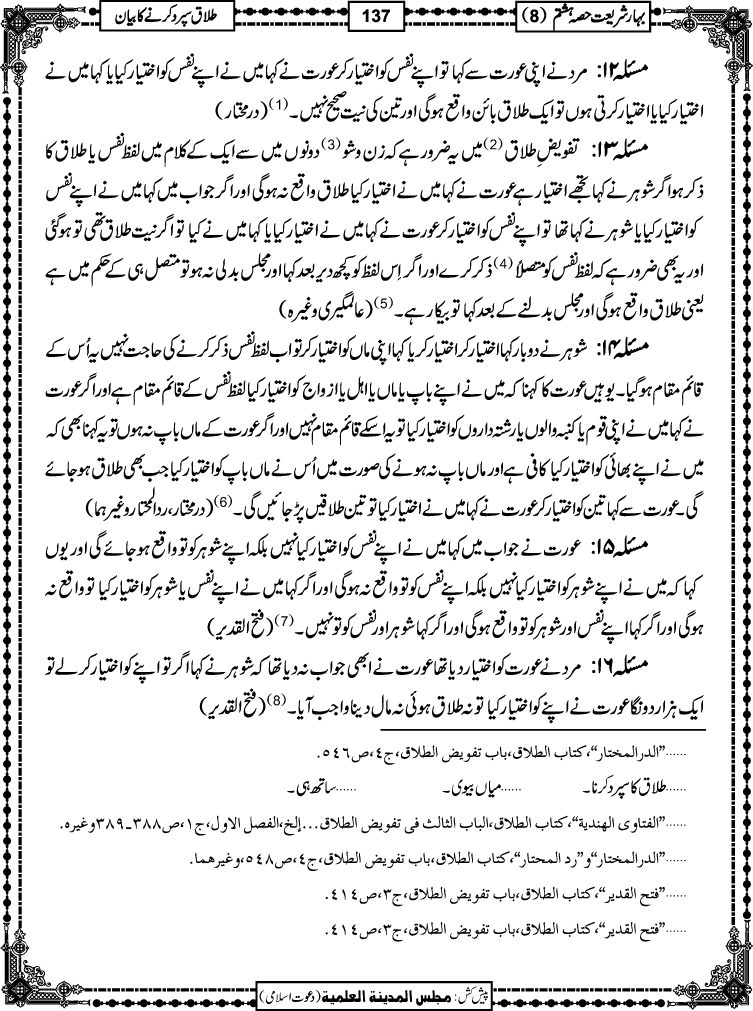 بہار شریعت حصہ ہشتم (8)
137
طلاق سپرد کرنے کا بیان
مسئلہ ۱۲: مرد نے اپنی عورت سے کہا تو اپنے نفس کو اختیار کر عورت نے کہا میں نے اپنے نفس کو اختیار کیا یا کہا میں نے
اختیار کیا یا اختیار کرتی ہوں تو ایک طلاق بائن واقع ہوگی اور تین کی نیت صحیح نہیں۔(1) (درمختار)
مسئلہ ۱۳: تفویضِ طلاق(2) میں یہ ضرور ہے کہ زن و شو(3) دونوں میں سے ایک کے کلام میں لفظ نفس یا طلاق کا
ذکر ہو اگر شوہر نے کہا تجھے اختیار ہے عورت نے کہا میں نے اختیار کیا طلاق واقع نہ ہوگی اور اگر جواب میں کہا میں نے اپنے نفس
کو اختیار کیا یا شوہر نے کہا تھا تو اپنے نفس کو اختیار کر عورت نے کہا میں نے اختیار کیا یا کہا میں نے کیا تو اگر نیت طلاق تھی تو ہوگئی
اور یہ بھی ضرور ہے کہ لفظ نفس کو متصلاً(4) ذکر کرے اور اگر اِس لفظ کو کچھ دیر بعد کہا اور مجلس بدلی نہ ہو تو متصل ہی کے حکم میں ہے
یعنی طلاق واقع ہوگی اور مجلس بدلنے کے بعد کہا تو بیکار ہے۔(5) (عالمگیری وغیرہ)
مسئلہ ۱۴: شوہر نے دوبار کہا اختیار کر اختیار کر یا کہا اپنی ماں کو اختیار کر تو اب لفظ نفس ذکر کرنے کی حاجت نہیں یہ اُس کے
قائم مقام ہوگیا۔ یوہیں عورت کا کہنا کہ میں نے اپنے باپ یا ماں یا اہل یا ازواج کو اختیار کیا لفظ نفس کے قائم مقام ہے اور اگر عورت
نے کہا میں نے اپنی قوم یا کنبہ والوں یا رشتہ داروں کو اختیار کیا تو یہ اسکے قائم مقام نہیں اور اگر عورت کے ماں باپ نہ ہوں تو یہ کہنا بھی کہ
میں نے اپنے بھائی کو اختیار کیا کافی ہے اور ماں باپ نہ ہونے کی صورت میں اُس نے ماں باپ کو اختیار کیا جب بھی طلاق ہوجائے
گی۔ عورت سے کہا تین کو اختیار کر عورت نے کہا میں نے اختیار کیا تو تین طلاقیں پڑجائیں گی۔(6) (درمختار، ردالمحتار وغیرہما)
مسئلہ ۱۵: عورت نے جواب میں کہا میں نے اپنے نفس کو اختیار کیا نہیں بلکہ اپنے شوہر کو تو واقع ہوجائے گی اور یوں
کہا کہ میں نے اپنے شوہر کو اختیار کیا نہیں بلکہ اپنے نفس کو تو واقع نہ ہوگی اور اگر کہا میں نے اپنے نفس یا شوہر کو اختیار کیا تو واقع نہ
ہوگی اور اگر کہا اپنے نفس اور شوہر کو تو واقع ہوگی اور اگر کہا شوہر اور نفس کو تو نہیں۔(7) (فتح القدیر)
مسئلہ ۱۶: مرد نے عورت کو اختیار دیا تھا عورت نے ابھی جواب نہ دیا تھا کہ شوہر نے کہا اگر تو اپنے کو اختیار کرلے تو
ایک ہزار دونگا عورت نے اپنے کو اختیار کیا تو نہ طلاق ہوئی نہ مال دینا واجب آیا۔(8) (فتح القدیر)
......”الدرالمختار“، کتاب الطلاق، باب تفویض الطلاق، ج٤، ص٥٤٦.
......طلاق کا سپرد کرنا۔ ......میاں بیوی۔ ......ساتھ ہی۔
......”الفتاوی الھندیة“، کتاب الطلاق، الباب الثالث فی تفویض الطلاق...إلخ، الفصل الاول، ج١، ص٣٨٨-٣٨٩ وغیرہ.
......”الدرالمختار“ و ”رد المحتار“، کتاب الطلاق، باب تفویض الطلاق، ج٤، ص٥٤٨، وغیرهما.
......”فتح القدیر“، کتاب الطلاق، باب تفویض الطلاق، ج٣، ص٤١٤.
......”فتح القدیر“، کتاب الطلاق، باب تفویض الطلاق، ج٣، ص٤١٤.
پیش کش: مجلس المدینة العلمیة (دعوت اسلامی)